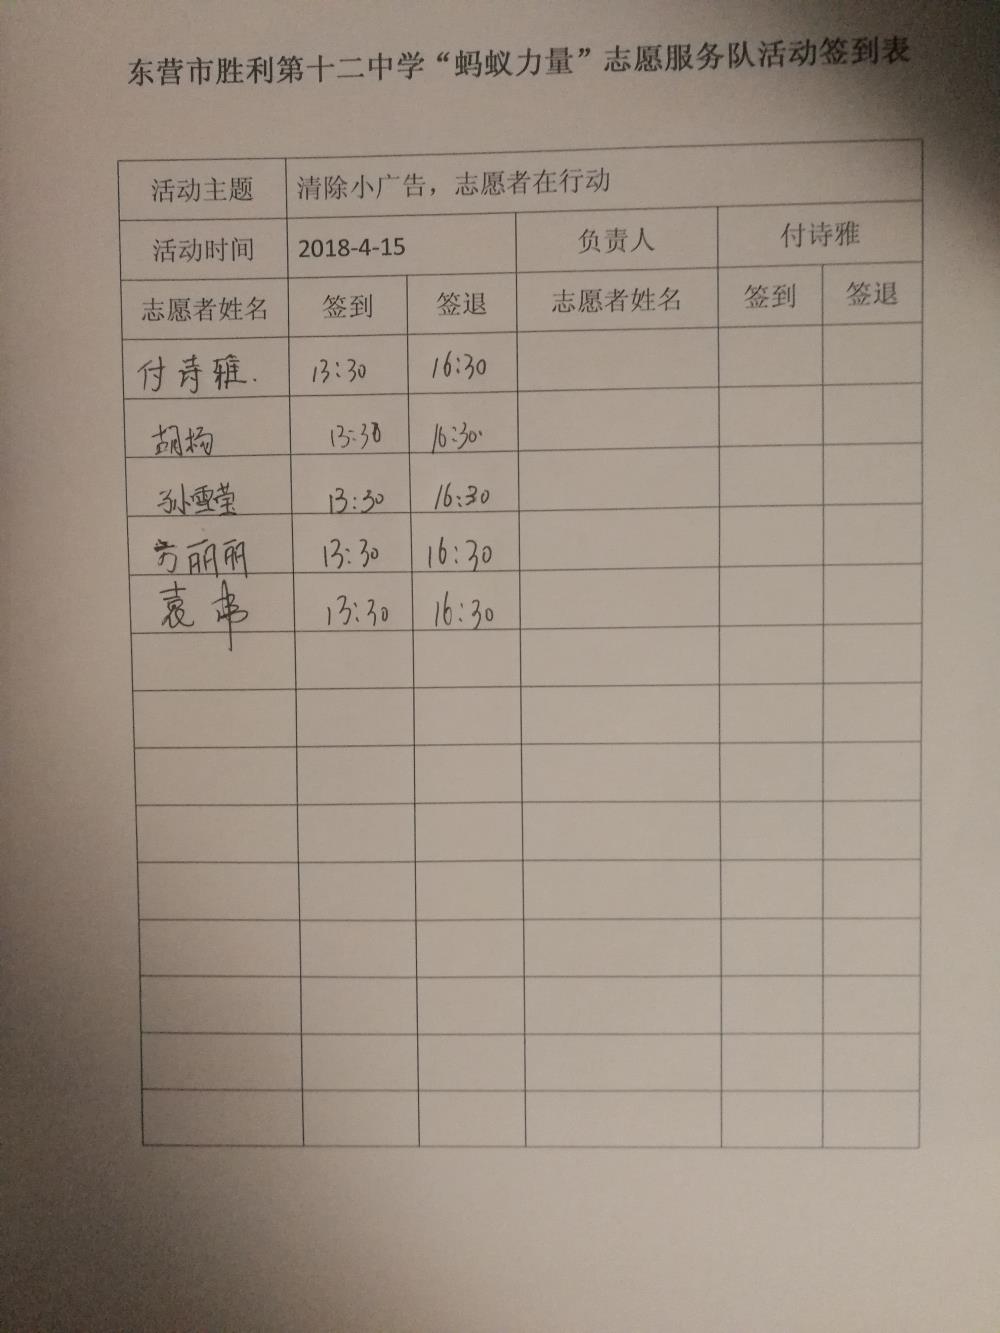 东营市胜利第十二中学“蚂蚁力量”志愿服务队活动签到表
活动主题 清除小广告，志愿者在行动
活动时间 2018-4-15 负责人 付诗雅
志愿者姓名 签到 签退 志愿者姓名 签到 签退
付诗雅. 13:30 16:30
胡杨 13:30 16:30.
孙雪莹 13:30 16:30
丽丽 13:30 16:30
袁 13:30 16:30